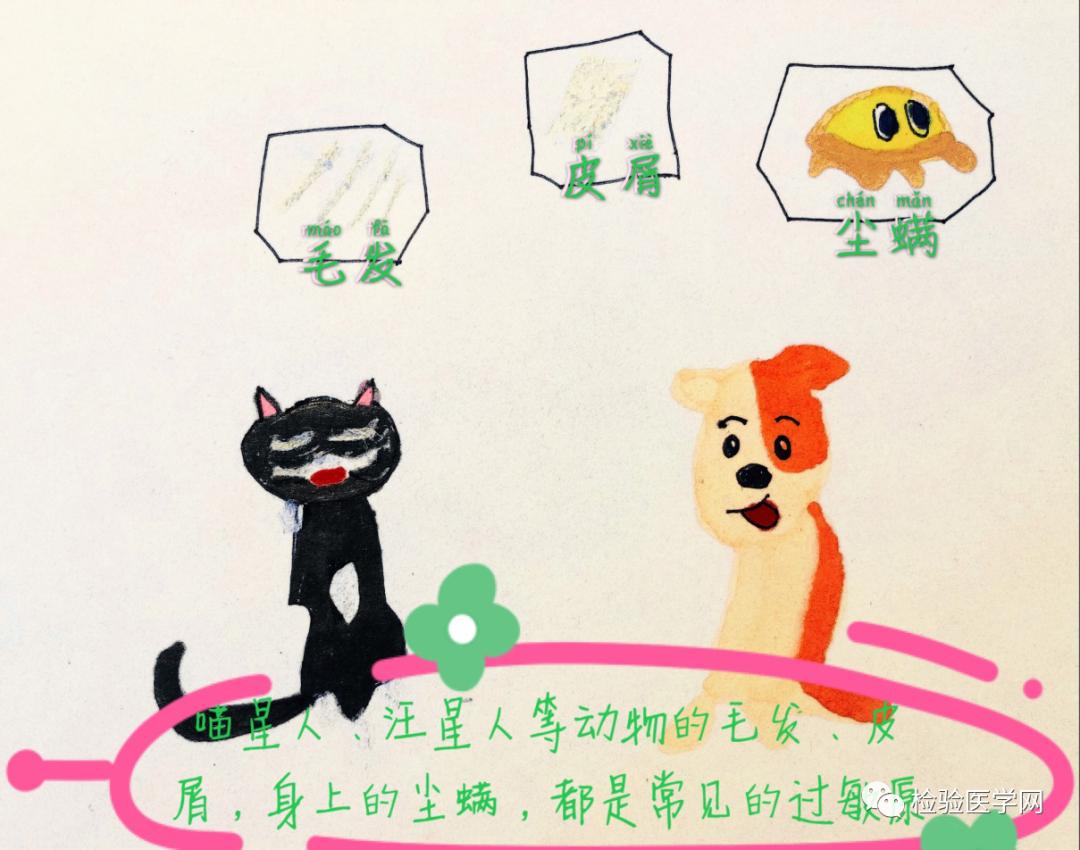 pí xiè
皮屑
chén mǎn
尘螨
máo fà
毛发
喵星人、汪星人等动物的毛发、皮
屑，身上的尘螨，都是常见的过敏源
检验医学网